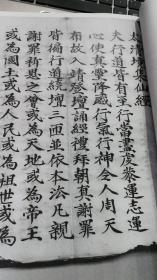 太清壇集仙經
夫行道皆有至行當畫虔發運志運
心使真靈降感行氣行神令人周天
布故入靖登壇誦經禮拜朝真謝罪
皆備行道繞壇三匝並依本法凡親
謝罪祈恩之會或為天地或為帝王
或為國土或為人民或為祖世或為